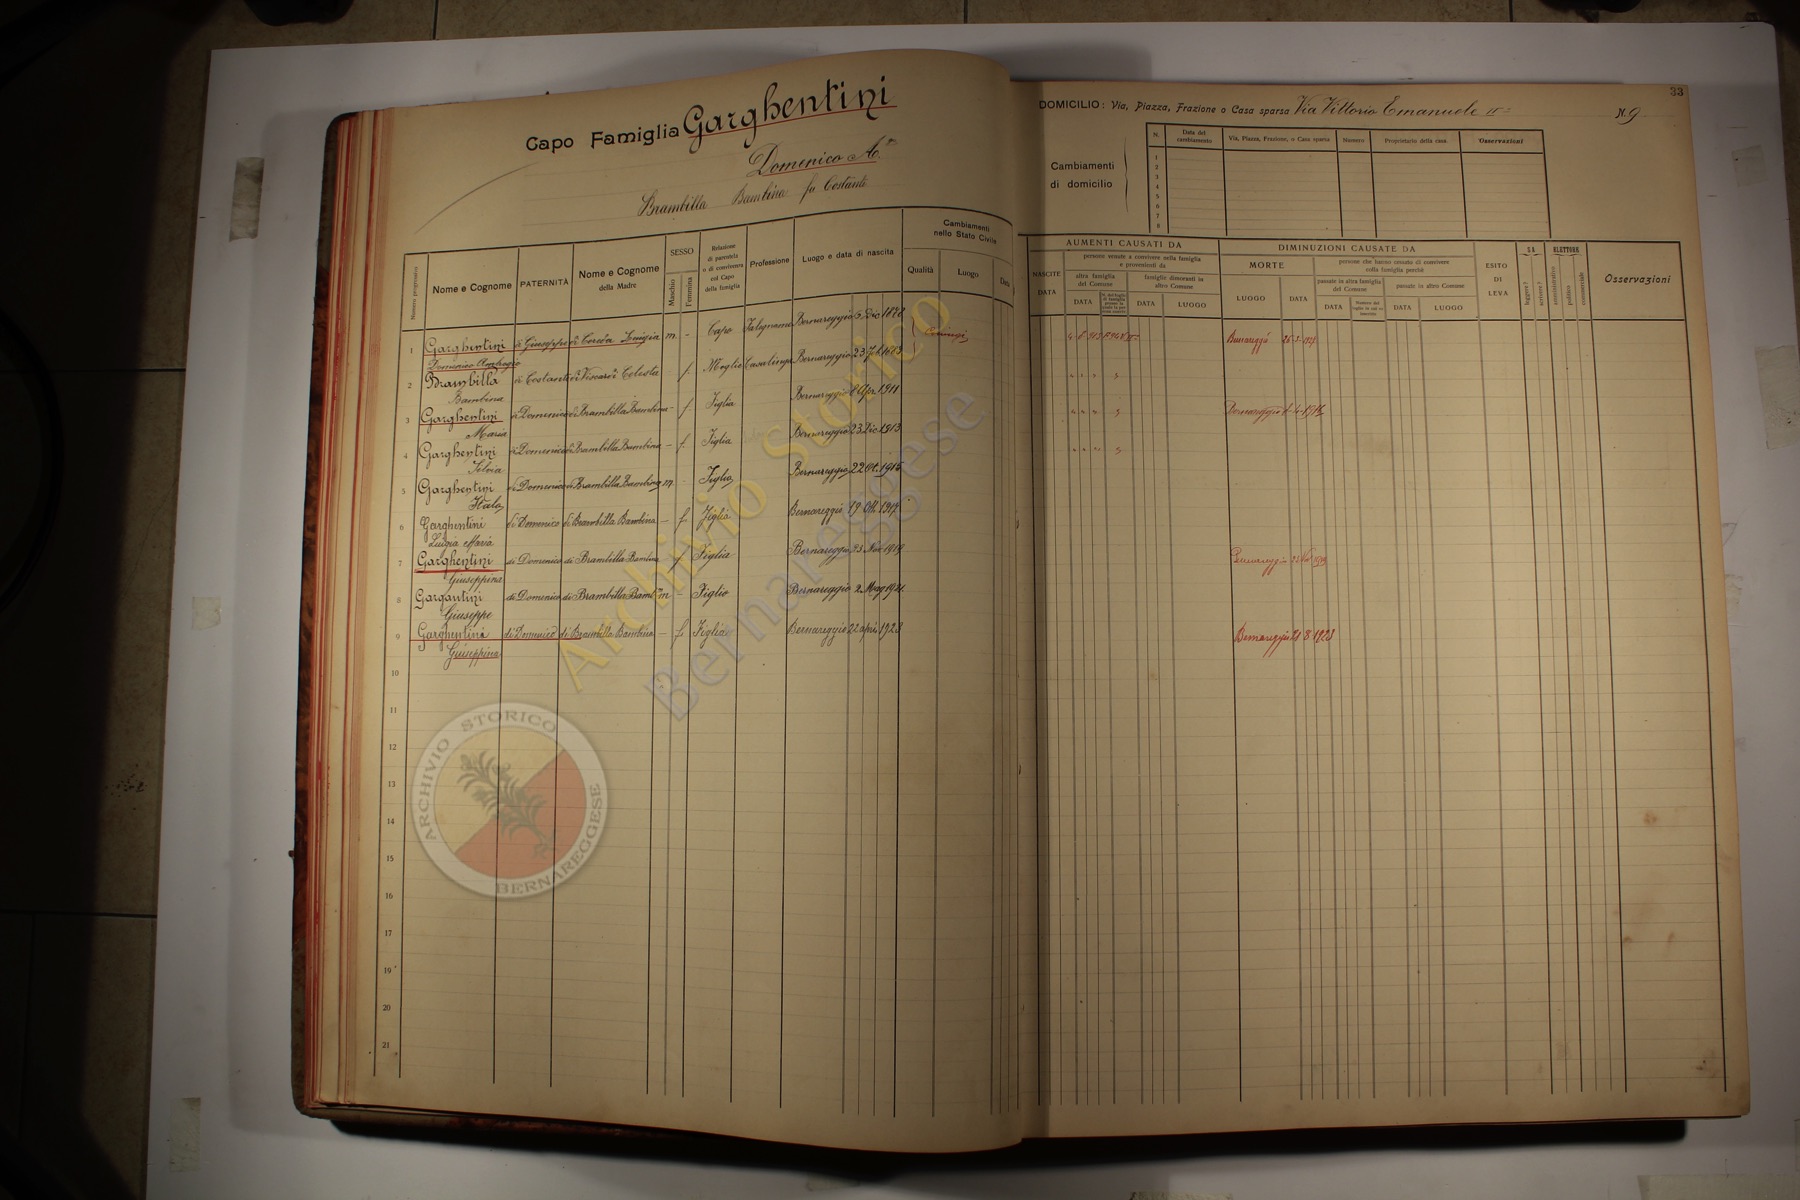 33
Capo Famiglia Garghentini
Domenico A.
Brambilla Bambina fu Costante
DOMICILIO: Via, Piazza, Frazione o Casa sparsa Via Vittorio Emanuele II
N. 9
Cambiamenti di domicilio
N. Data del cambiamento Via, Piazza, Frazione, o Casa sparsa Numero Proprietario della casa. Osservazioni
1
2
3
4
5
6
7
8
Numero progressivo
Nome e Cognome
PATERNITÀ
Nome e Cognome della Madre
SESSO
Maschio
Femmina
Relazione di parentela o di convivenza col Capo della famiglia
Professione
Luogo e data di nascita
Cambiamenti nello Stato Civile
Qualità Luogo Data
NASCITE DATA
AUMENTI CAUSATI DA
persone venute a convivere nella famiglia e provenienti da
altra famiglia del Comune
famiglie dimoranti in altro Comune
DATA
DATA LUOGO
DIMINUZIONI CAUSATE DA
MORTE
LUOGO DATA
persone che hanno cessato di convivere colla famiglia perchè
passate in altra famiglia del Comune
passate in altro Comune
DATA
DATA LUOGO
ESITO DI LEVA
SA
leggere?
scrivere?
ELETTORE
amministrativo
politico
commerciale
Osservazioni
1 Garghentini di Giuseppe m - Capo Bernareggio 5 Dic 1878 Coniugi
Domenico Ambrogio
2 Brambilla di Costante di Viscardi Celesta f. Moglie Casalinga Bernareggio
Bambina
3 Garghentini di Domenico di Brambilla Bambina - f Figlia Bernareggio Apr. 1911
Maria
4 Garghentini di Domenico di Brambilla Bambina - f. Figlia Bernareggio 23 Dic 1913
Silvia
5 Garghentini di Domenico di Brambilla Bambina m - Figlio Bernareggio 22 Ott. 1915
Italo
6 Garghentini di Domenico di Brambilla Bambina - f. Figlia Bernareggio 19 Ott. 1917
Luigia Maria
7 Garghentini di Domenico di Brambilla Bambina f Figlia Bernareggio Nov 1919
Giuseppina
8 Gargantini di Domenico di Brambilla Bamb m - Figlio Bernareggio 2 Mag 1921
Giuseppe
9 Garghentini di Domenico di Brambilla Bambina - f. Figlia Bernareggio 22 apri 1923 Bernareggio 21 8 1923
Giuseppina
10
11
12
13
14
15
16
17
18
19
20
21
Archivio Storico
Bernareggese
ARCHIVIO STORICO
BERNAREGGESE